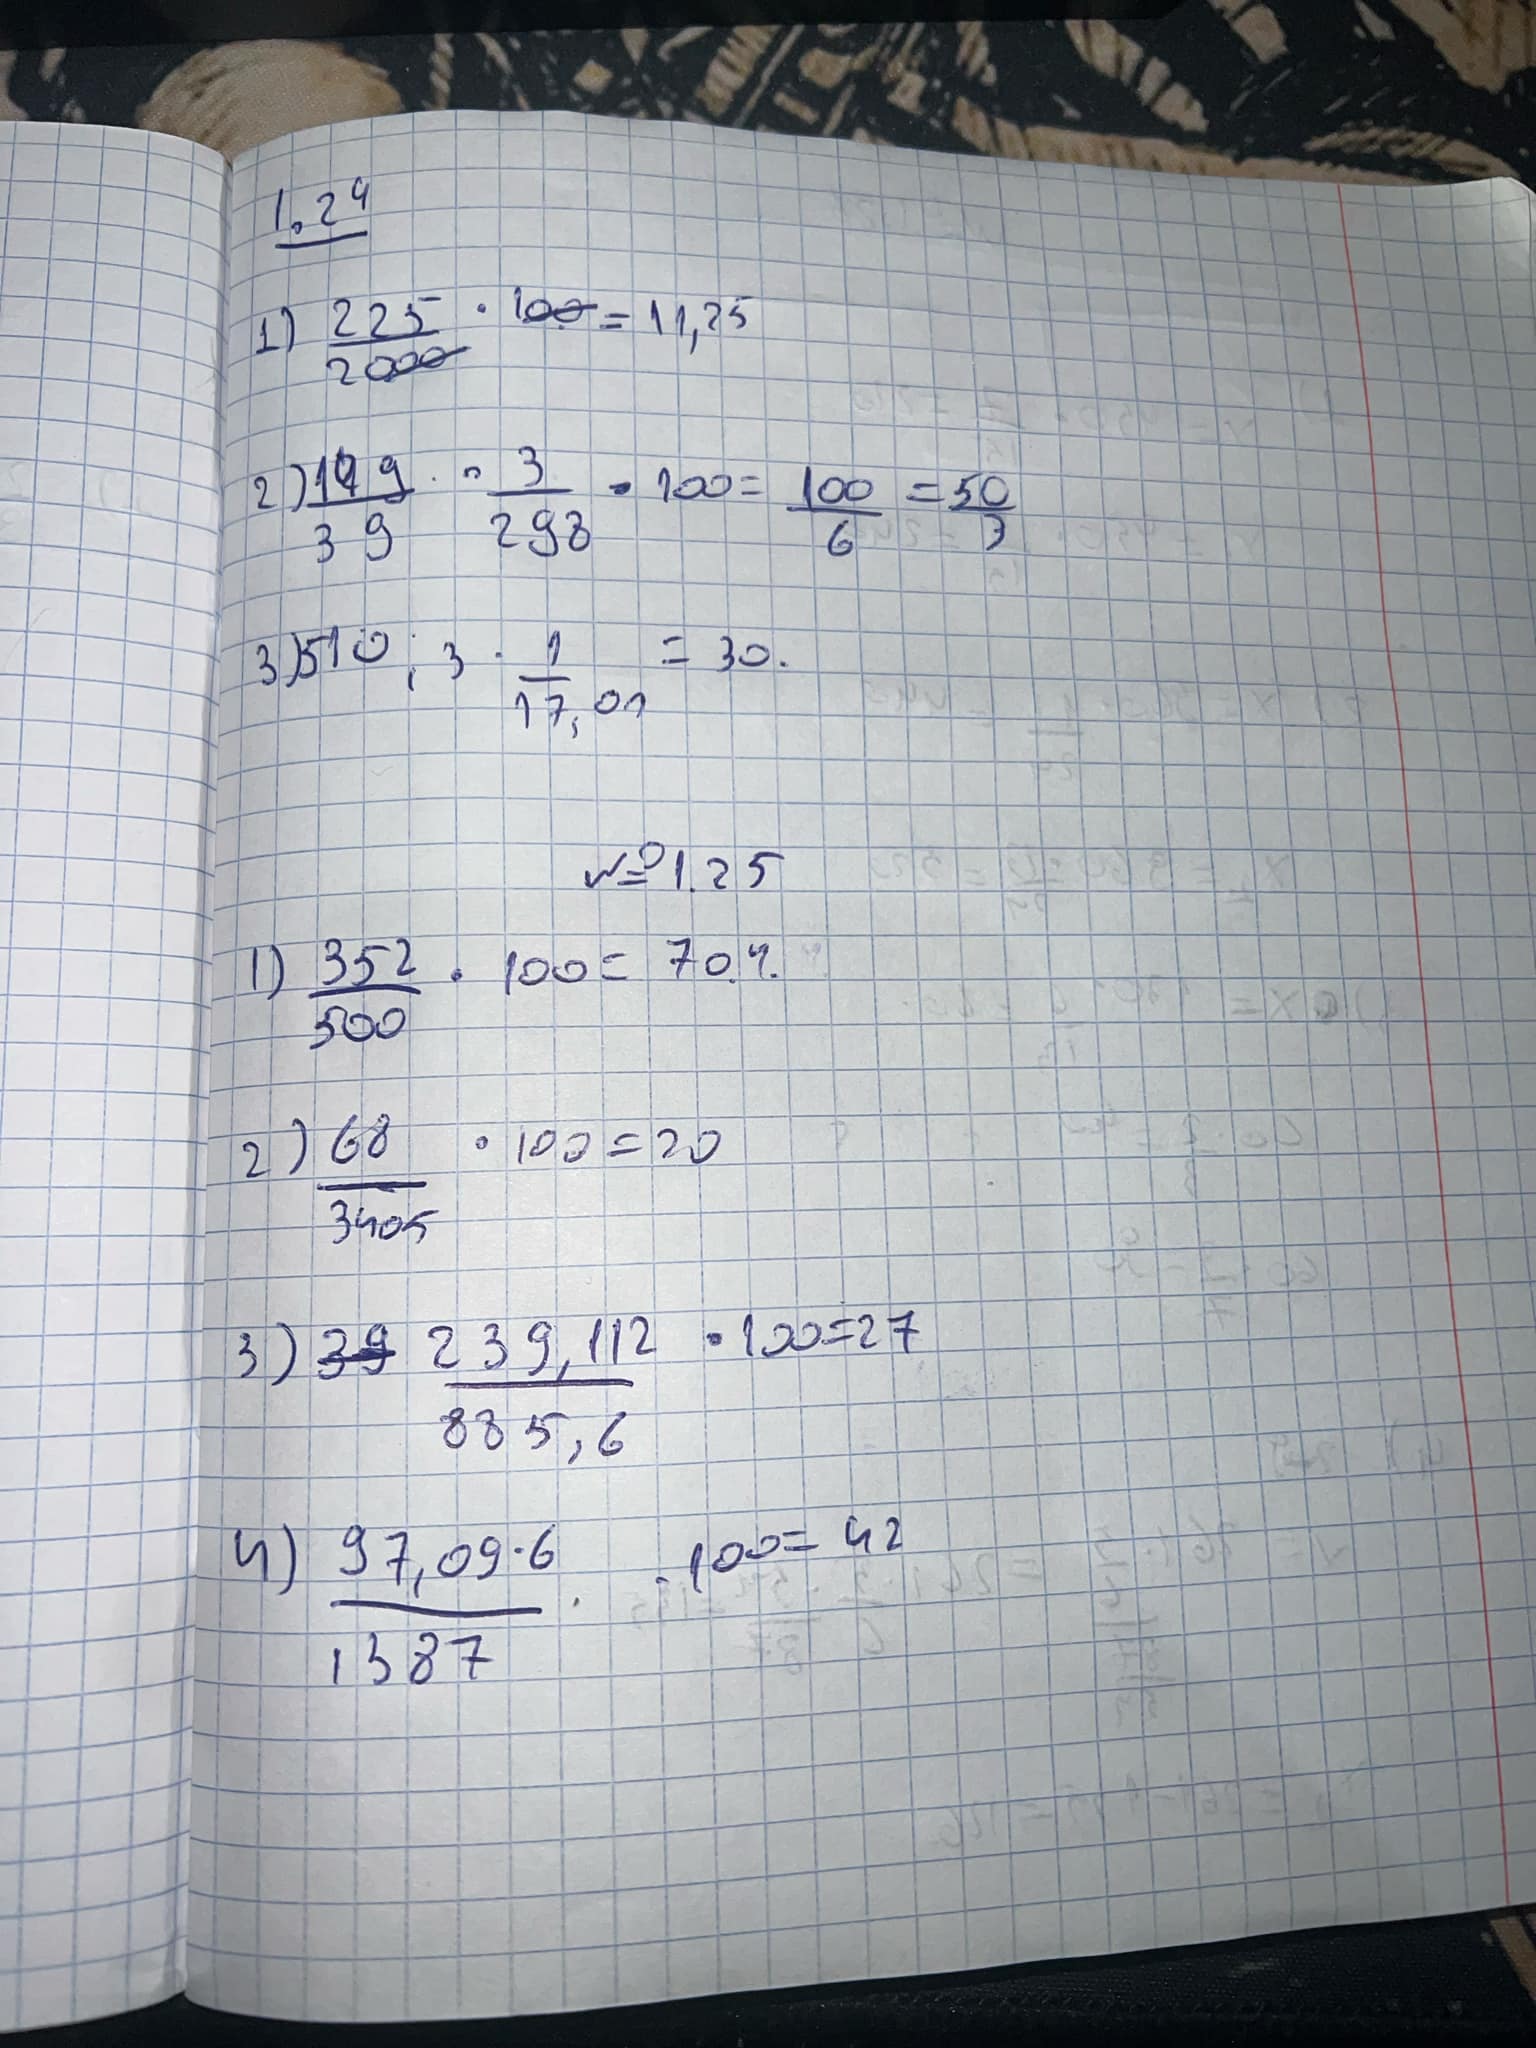 1.24
1) 225/2000 · 100 = 11,25
2) 149/39 · 3/298 · 100 = 100/6 = 50/3
3) 510,3 · 1/17,01 = 30.
№ 1.25
1) 352/500 · 100 = 70.4.
2) 68/3405 · 100 = 20
3) 39 239,112/885,6 · 100 = 27
4) 97,09·6/1387 · 100 = 42